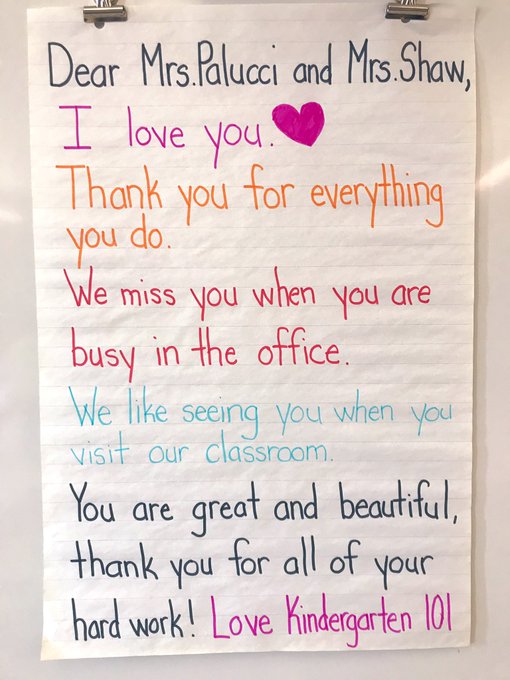 Dear Mrs.Palucci and Mrs.Shaw,
I love you.
Thank you for everything
you do.
We miss you when you are
busy in the office.
We like seeing you when you
visit our classroom.
You are great and beautiful,
thank you for all of your
hard work! Love Kindergarten 101